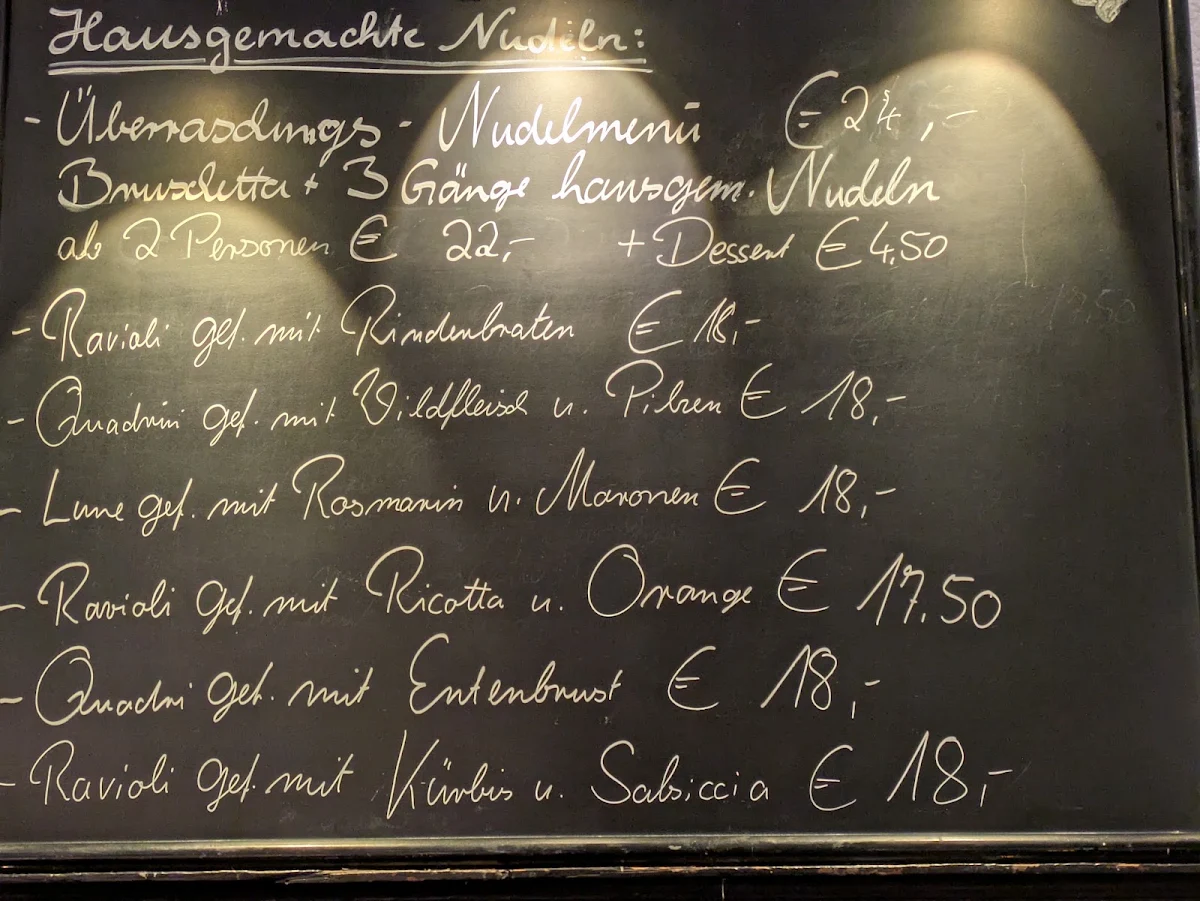 Hausgemachte Nudeln:
- Überraschungs - Nudelmenü € 24,-
Bruschetta + 3 Gänge hausgem. Nudeln
ab 2 Personen € 22,- + Dessert € 4,50
- Ravioli gef. mit Rinderbraten € 18,-
- Quadrini gef. mit Wildfleisch u. Pilzen € 18,-
- Lune gef. mit Rosmarin u. Maronen € 18,-
- Ravioli gef. mit Ricotta u. Orange € 17.50
- Quadri gef. mit Entenbrust € 18,-
- Ravioli gef. mit Kürbis u. Salsiccia € 18,-